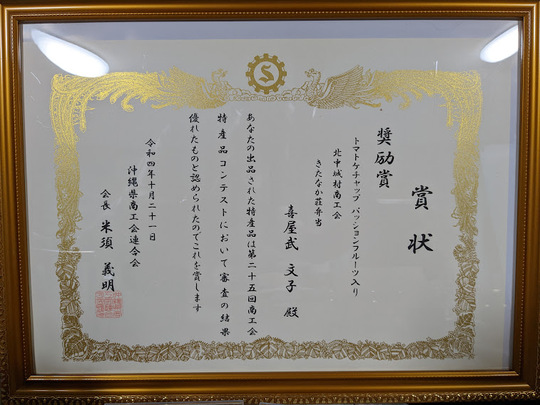 賞状
奨励賞
トマトケチャップ パッションフルーツ入り
北中城村商工会
きたなか荘弁当
喜屋武 文子 殿
あなたの出品された特産品は第二十五回商工会
特産品コンテストにおいて審査の結果
優れたものと認められたのでこれを賞します
令和四年十月二十一日
沖縄県商工会連合会
会長 米須 義明